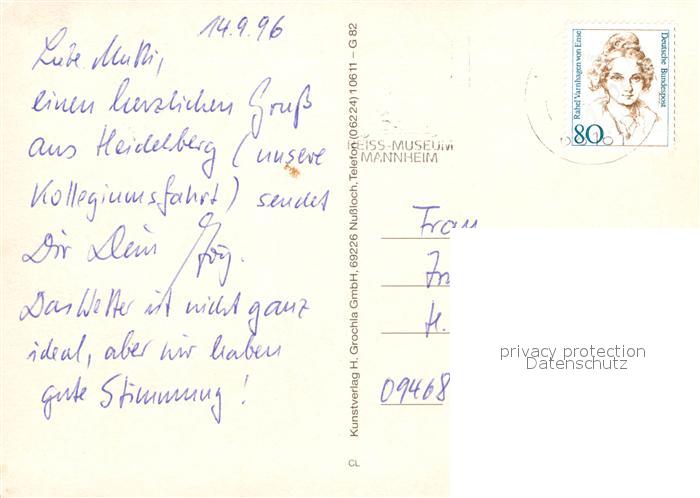 14.9.96
Liebe Mutti,
einen herzlichen Gruß
aus Heidelberg (unsere
Kollegiumsfahrt) sendet
Dir Dein Jörg.
Das Wetter ist nicht ganz
ideal, aber wir haben
gute Stimmung!
Kunstverlag H. Grochla GmbH, 69226 Nußloch, Telefon (06224) 10611 – G 82
CL
REISS-MUSEUM
MANNHEIM
Rahel Varnhagen von Ense
Deutsche Bundespost
80
Frau
H.
09468
privacy protection
Datenschutz